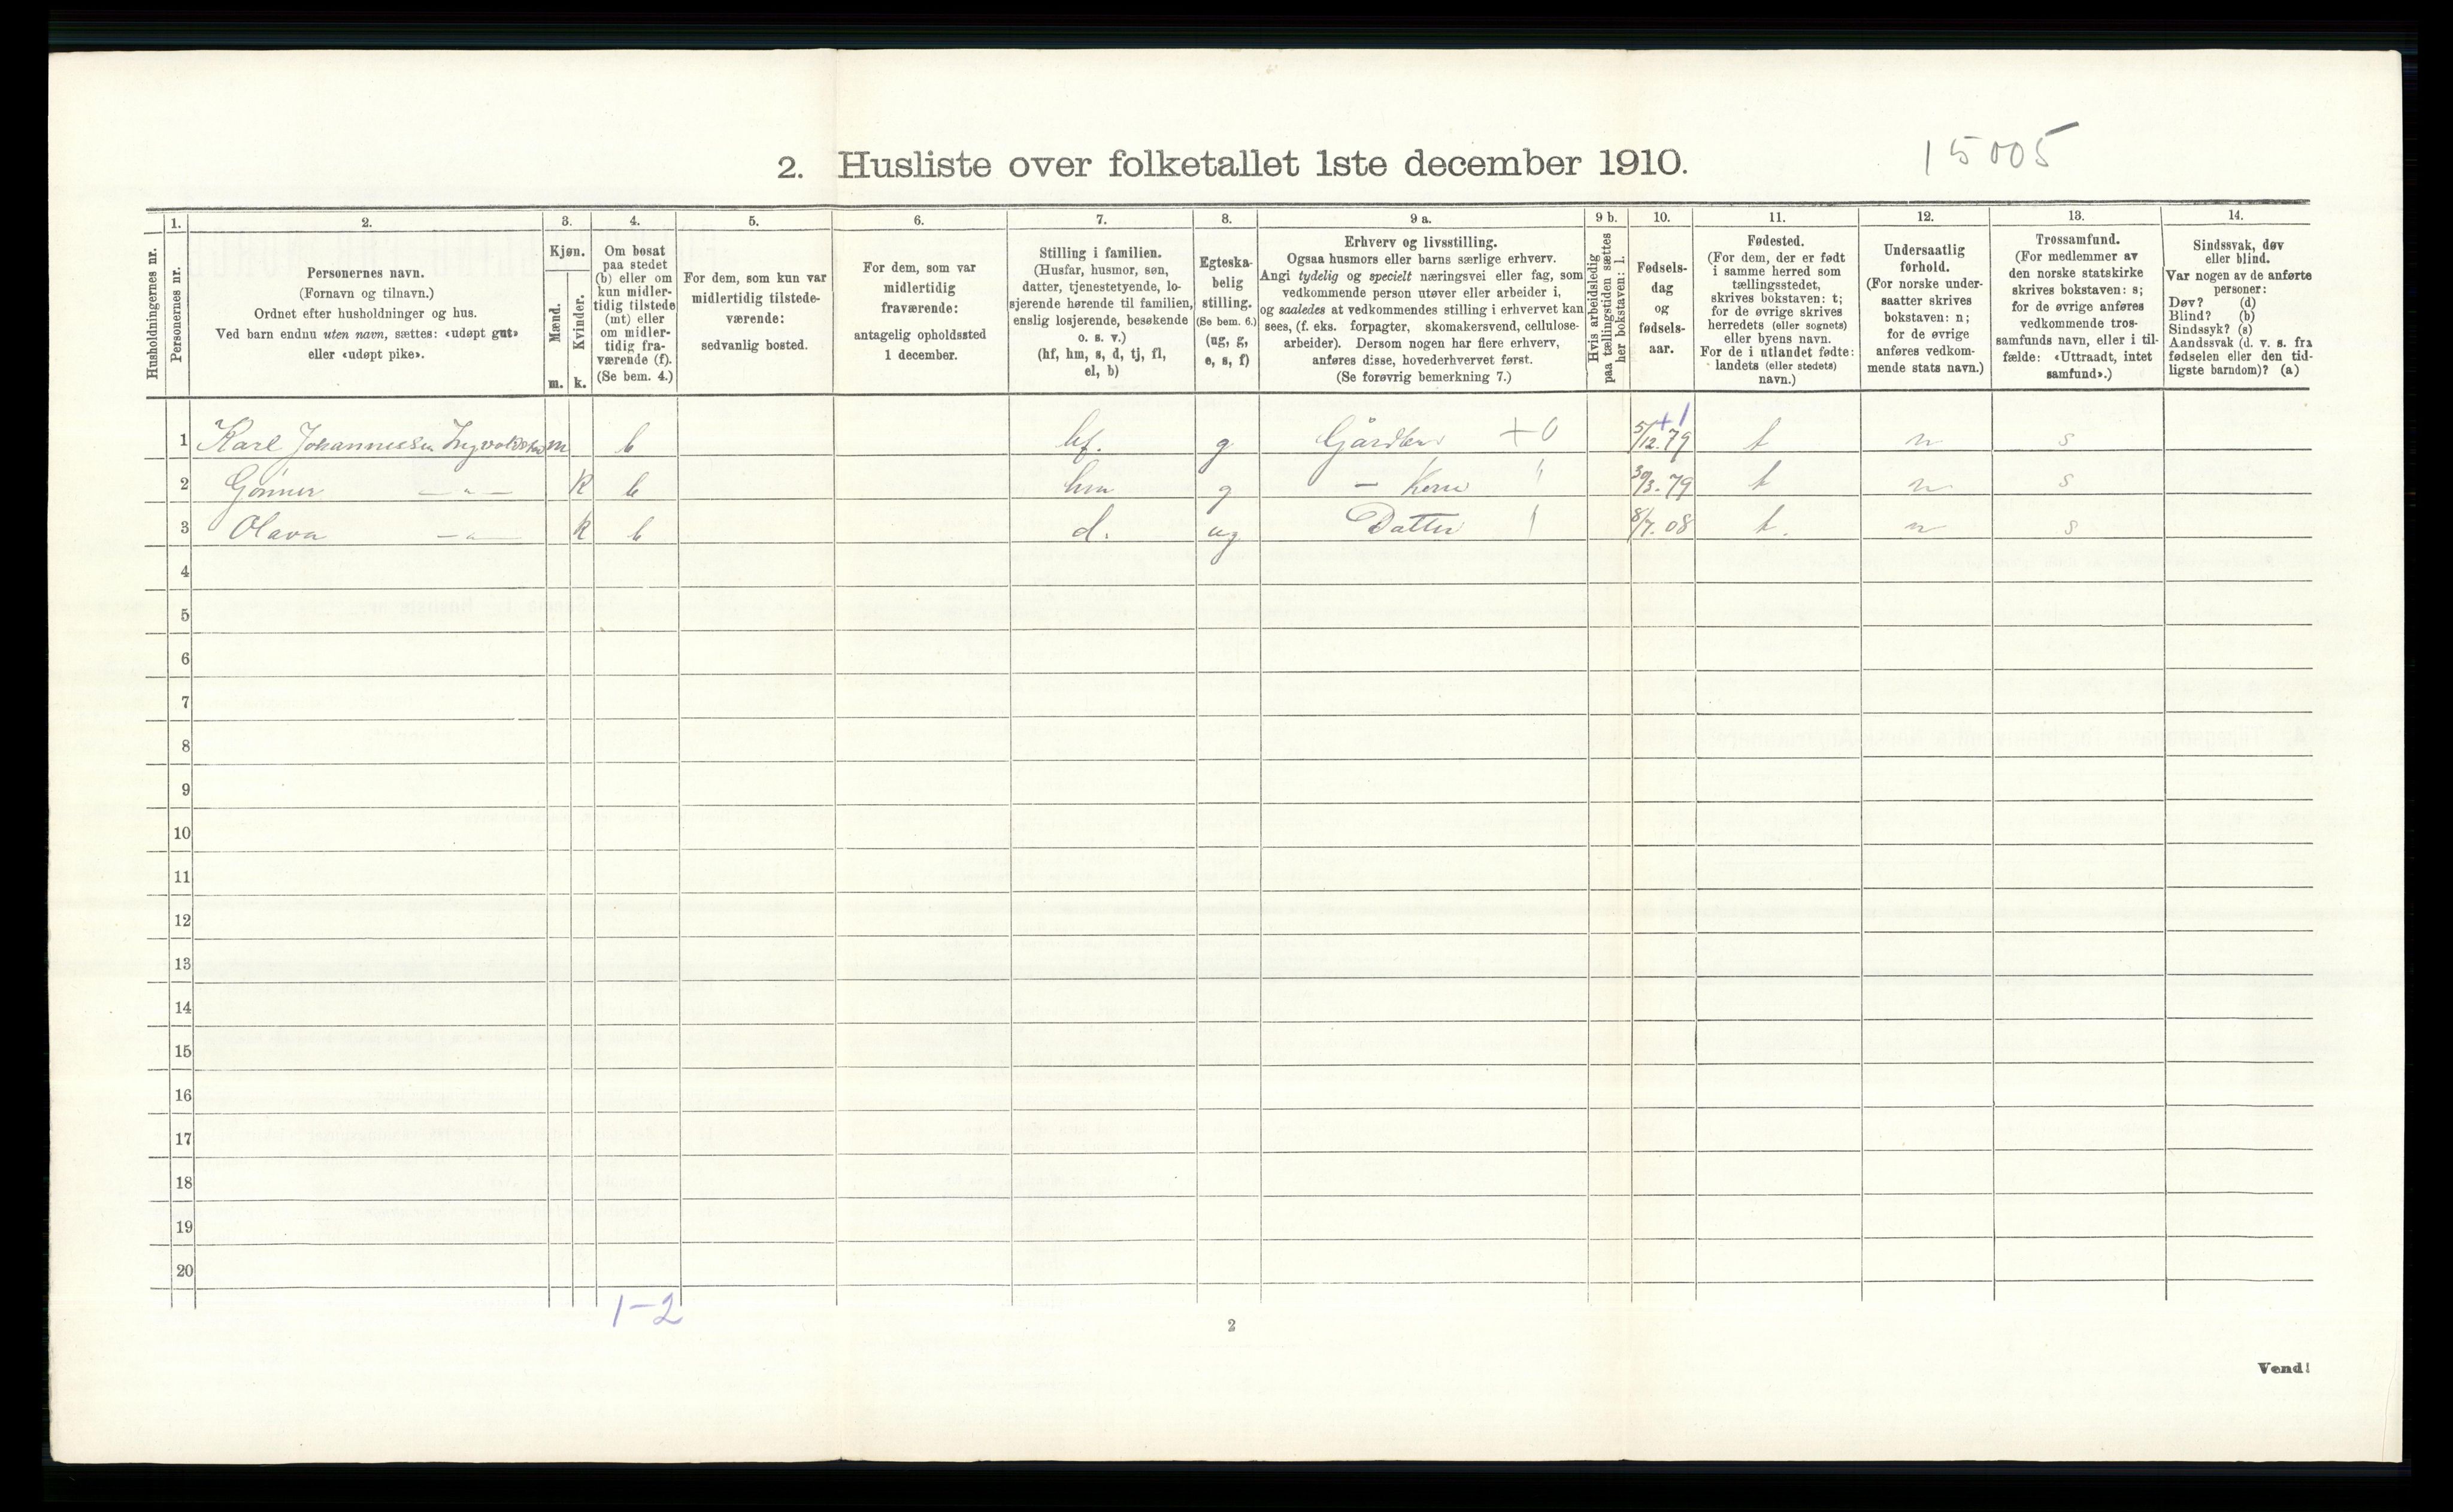 15005
2. Husliste over folketallet 1ste december 1910.
Husholdningernes nr.
1.
Personernes nr.
2.
Personernes navn.
(Fornavn og tilnavn.)
Ordnet efter husholdninger og hus.
Ved barn endnu uten navn, sættes: «udøpt gut»
eller «udøpt pike».
3.
Kjøn.
Mænd.
m.
Kvinder.
k.
4.
Om bosat
paa stedet
(b) eller om
kun midler-
tidig tilstede
(mt) eller
om midler-
tidig fra-
værende (f).
(Se bem. 4.)
5.
For dem, som kun var
midlertidig tilstede-
værende:
sedvanlig bosted.
6.
For dem, som var
midlertidig
fraværende:
antagelig opholdssted
1 december.
7.
Stilling i familien.
(Husfar, husmor, søn,
datter, tjenestetyende, lo-
sjerende hørende til familien,
enslig losjerende, besøkende
o. s. v.)
(hf, hm, s, d, tj, fl,
el, b)
8.
Egteska-
belig
stilling.
(Se bem. 6.)
(ug, g,
e, s, f)
9 a.
Erhverv og livsstilling.
Ogsaa husmors eller barns særlige erhverv.
Angi tydelig og specielt næringsvei eller fag, som
vedkommende person utøver eller arbeider i,
og saaledes at vedkommendes stilling i erhvervet kan
sees, (f. eks. forpagter, skomakersvend, cellulose-
arbeider). Dersom nogen har flere erhverv,
anføres disse, hovederhvervet først.
(Se forøvrig bemerkning 7.)
9 b.
Hvis arbeidsledig
paa tællingstiden sættes
her bokstaven: l.
10.
Fødsels-
dag
og
fødsels-
aar.
11.
Fødested.
(For dem, der er født
i samme herred som
tællingsstedet,
skrives bokstaven: t;
for de øvrige skrives
herredets (eller sognets)
eller byens navn.
For de i utlandet fødte:
landets (eller stedets)
navn.)
12.
Undersaatlig
forhold.
(For norske under-
saatter skrives
bokstaven: n;
for de øvrige
anføres vedkom-
mende stats navn.)
13.
Trossamfund.
(For medlemmer av
den norske statskirke
skrives bokstaven: s;
for de øvrige anføres
vedkommende tros-
samfunds navn, eller i til-
fælde: «Uttraadt, intet
samfund».)
14.
Sindssvak, døv
eller blind.
Var nogen av de anførte
personer:
Døv? (d)
Blind? (b)
Sindssyk? (s)
Aandssvak (d. v. s. fra
fødselen eller den tid-
ligste barndom)? (a)
+1
1 Karl Johannessen m b hf. g +0 5/12.79 t n s
2 Gønner — " — k b hm g — Kone " 30/3.79 t n s
3 Olava — " — k b d. ug Datter 8/7.08 t. n s
4
5
6
7
8
9
10
11
12
13
14
15
16
17
18
19
20
1-2
2
Vend!